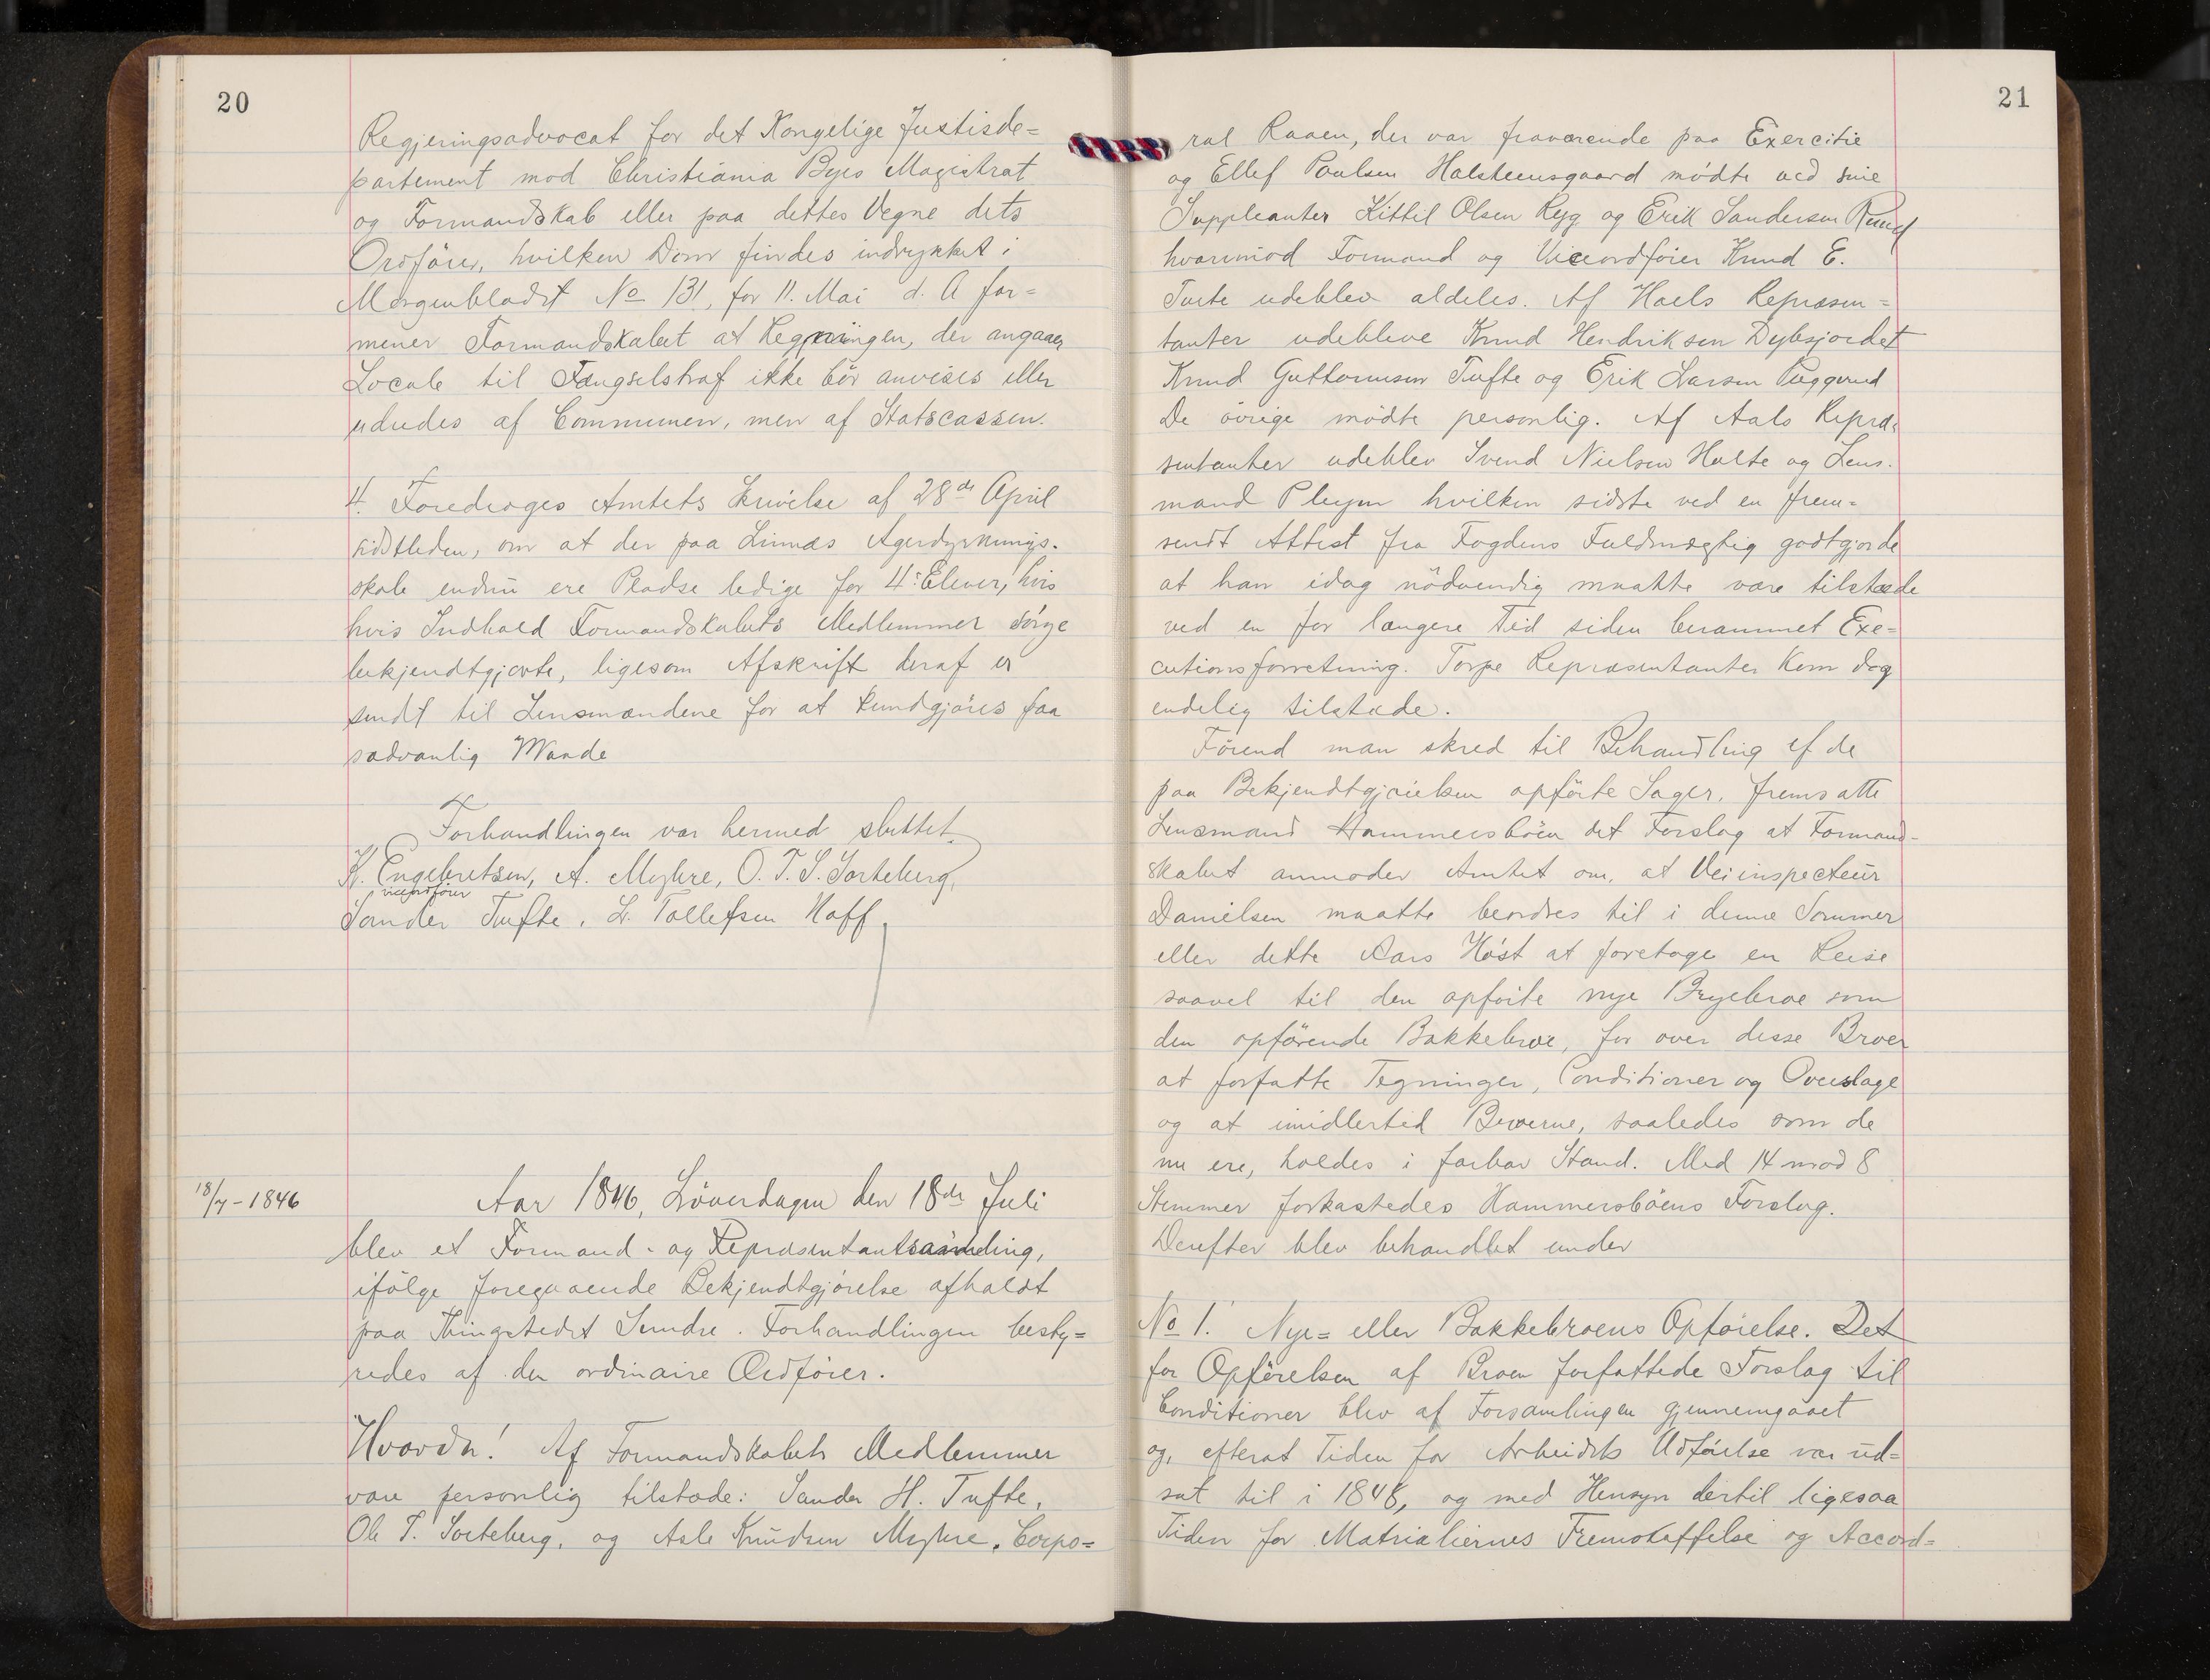 20
Regjeringsadvocat for det Kongelige Justisde=
partement mod Christiania Byes Magistrat
og Formandskab eller paa dettes Vegne dets
Ordfører, hvilken Dom findes indrykket i
Morgenbladet No 131, for 11. Mai d. A for=
mener Formandskabet at Regningen, der angaaer
Locale til Fængselstraf ikke bör anvises eller
udredes af Communen, men af Statscassen.
4. Foredroges Amtets Skrivelse af 28de April
sidstleden, om at der paa Linnæs Agerdyrknings-
skole endnu ere Pladse ledige for 4 Elever, hvis
hvis Indhold Formandskabets Medlemmer sörge
bekjendtgjorte, ligesom Afskrift deraf er
sendt til Lensmændene for at kundgjöres paa
sædvanlig Maade
Forhandlingen var hermed sluttet.
K. Engebretsen, A. Myhre, O. T. S. Sorteberg,
viceordförer
Sander Tufte. L. Tollefsen Hoff.
18/7-1846
Aar 1846, Löverdagen den 18de Juli
blev et Formand- og Repræsentantsamling,
ifölge foregaaende Bekjendtgjörelse afholdt
paa Thingstedet Sundre. Forhandlingen besty=
redes af den ordinaire Ordförer.
Hvorda! Af Formandskabets Medlemmer
vare personlig tilstæde: Sander H. Tufte,
Ole T. Sorteberg, og Asle Knudsen Myhre. Corpo=
21
ral Raaen, der var fraværende paa Exercitie
og Ellef Paulsen Halsteensgaard mödte ved sine
Suppleanter Kittil Olsen Ryg og Erik Sandersen Ruud
hvorimod Formand og Viceordförer Knud E.
Tufte udeblev aldeles. Af Hoels Repræsen=
tanter udebleve Knud Hendriksen Dybsjordet
Knud Guttormsen Tufte og Erik Larsen Puggerud
De övrige mödte personlig. Af Aals Repræ=
sentanter udeblev Svend Nielsen Holte og Lens-
mand Pleym hvilken sidste ved en frem=
sendt Attest fra Fogdens Fuldmægtig godtgjorde
at han idag nödvendig maatte være tilstæde
ved en for længere Tid siden berammet Exe=
cutionsforretning. Torpe Repræsentanter kom dog
endelig tilstæde.
Förend man skred til Behandling af de
paa Bekjendtgjörelsen opförte Sager, fremsatte
Lensmand Hammersböen det Forslag at Formand-
skabet anmoder Amtet om, at Veiinspecteur
Danielsen maatte beordres til i denne Sommer
eller dette Aars Höst at foretage en Reise
saavel til den opförte nye Bryebroe som
den opförende Bakkebroe, for over disse Broer
at forfatte Tegninger, Conditioner og Overslage
og at imidlertid Broerne, saaledes som de
nu ere, holdes i farbar Stand. Med 14 mod 8
Stemmer forkastedes Hammersböens Forslag.
Derefter blev behandlet under
No 1. Nye= eller Bakkebroens Opförelse. Det
for Opförelsen af Broen forfattede Forslag til
Conditioner blev af Forsamlingen gjennemgaaet
og, efterat Tiden for Arbeidets Udförelse var ud=
sat til i 1848, og med Hensyn dertil ligesaa
Tiden for Matrialiernes Fremskaffelse og Accord=